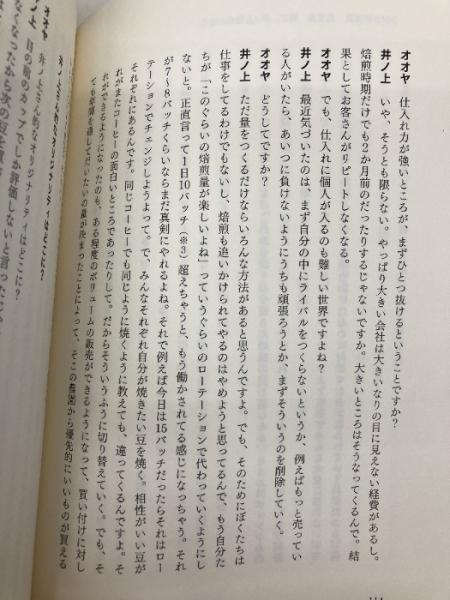 オオヤ　仕入れ力が強いところが、まずひとつ抜けるということですか？
井ノ上　いや、そうとも限らない。やっぱり大きい会社は大きいなりの目に見えない経費があるし。
焙煎時期だけでも2か月前のだったりするじゃないですか。大きいところはそうなってくるんで。結
果としてお客さんがリピートしなくなる。
オオヤ　でも、仕入れに個人が入るのも難しい世界ですよね？
井ノ上　最近気づいたのは、まず自分の中にライバルをつくらないというか、例えばもっと売ってい
る人がいたら、あいつに負けないようにうちも頑張ろうとか、まずそういうのを削除していく。
オオヤ　どうしてですか？
井ノ上　ただ量をつくるだけならいろんな方法があると思うんですよ。でも、そのためにぼくたちは
仕事をしてるわけでもないし、焙煎も追いかけられてやるのはやめようと思ってるんで、もう自分た
ちが「このぐらいの焙煎量が楽しいよね」っていうぐらいのローテーションで代わっていくようにし
ないと。正直言って1日10バッチ（※3）超えちゃうと、もう働かされてる感じになっちゃう。それ
が7〜8バッチくらいならまだ真剣にやれるよね。それで例えば今日は15バッチだったらそれはロー
テーションでチェンジしようよって。で、みんなそれぞれ自分が焼きたい豆を焼く。相性がいい豆が
それぞれにあるんです。同じコーヒーでも同じように焼くように教えても、違ってくるんですよ。そ
れがまたコーヒーの面白いところであったりして。だからそういうふうに切り替えていく。でも、そ
れができるようになったのも、ある程度のボリュームの販売ができるようになって、買い付けに対し
ても年間を通してだいたいの量が決まったことによって、そこの農園から優先的にいいものが買える
オオヤ　井ノ上さん的なオリジナリティはどこに？